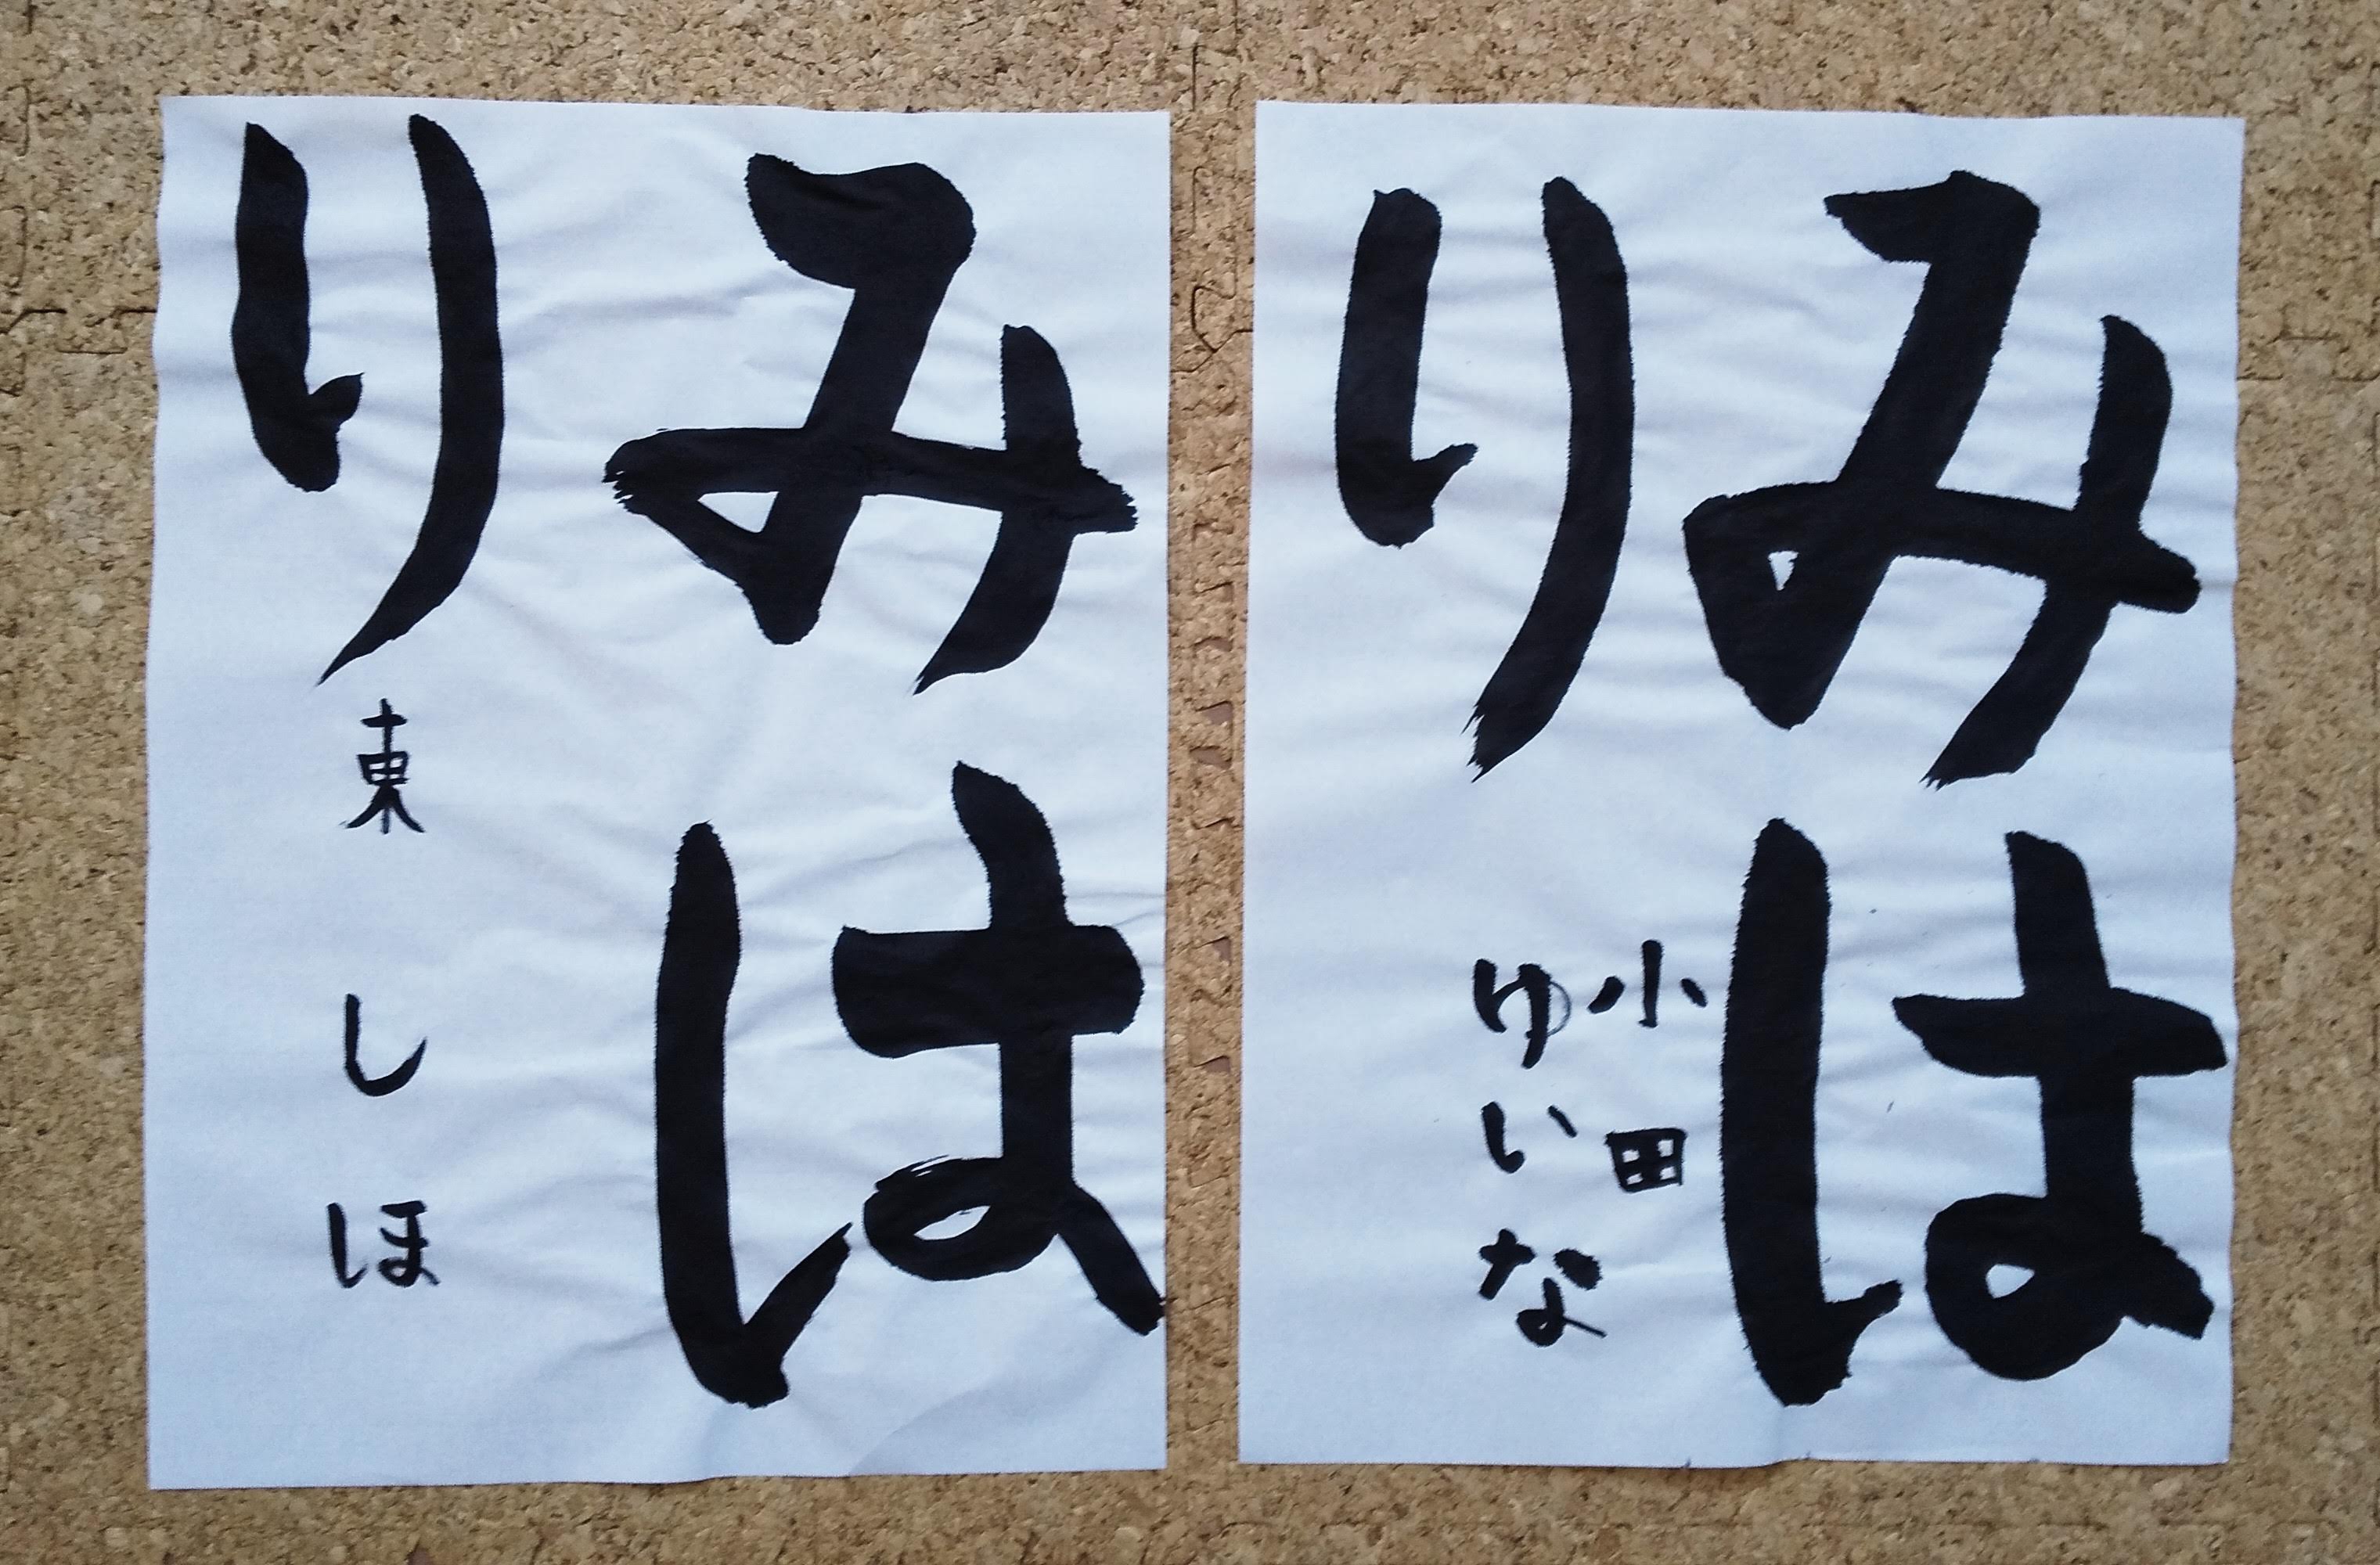 みは
り
小田
ゆいな
みは
り
東しほ